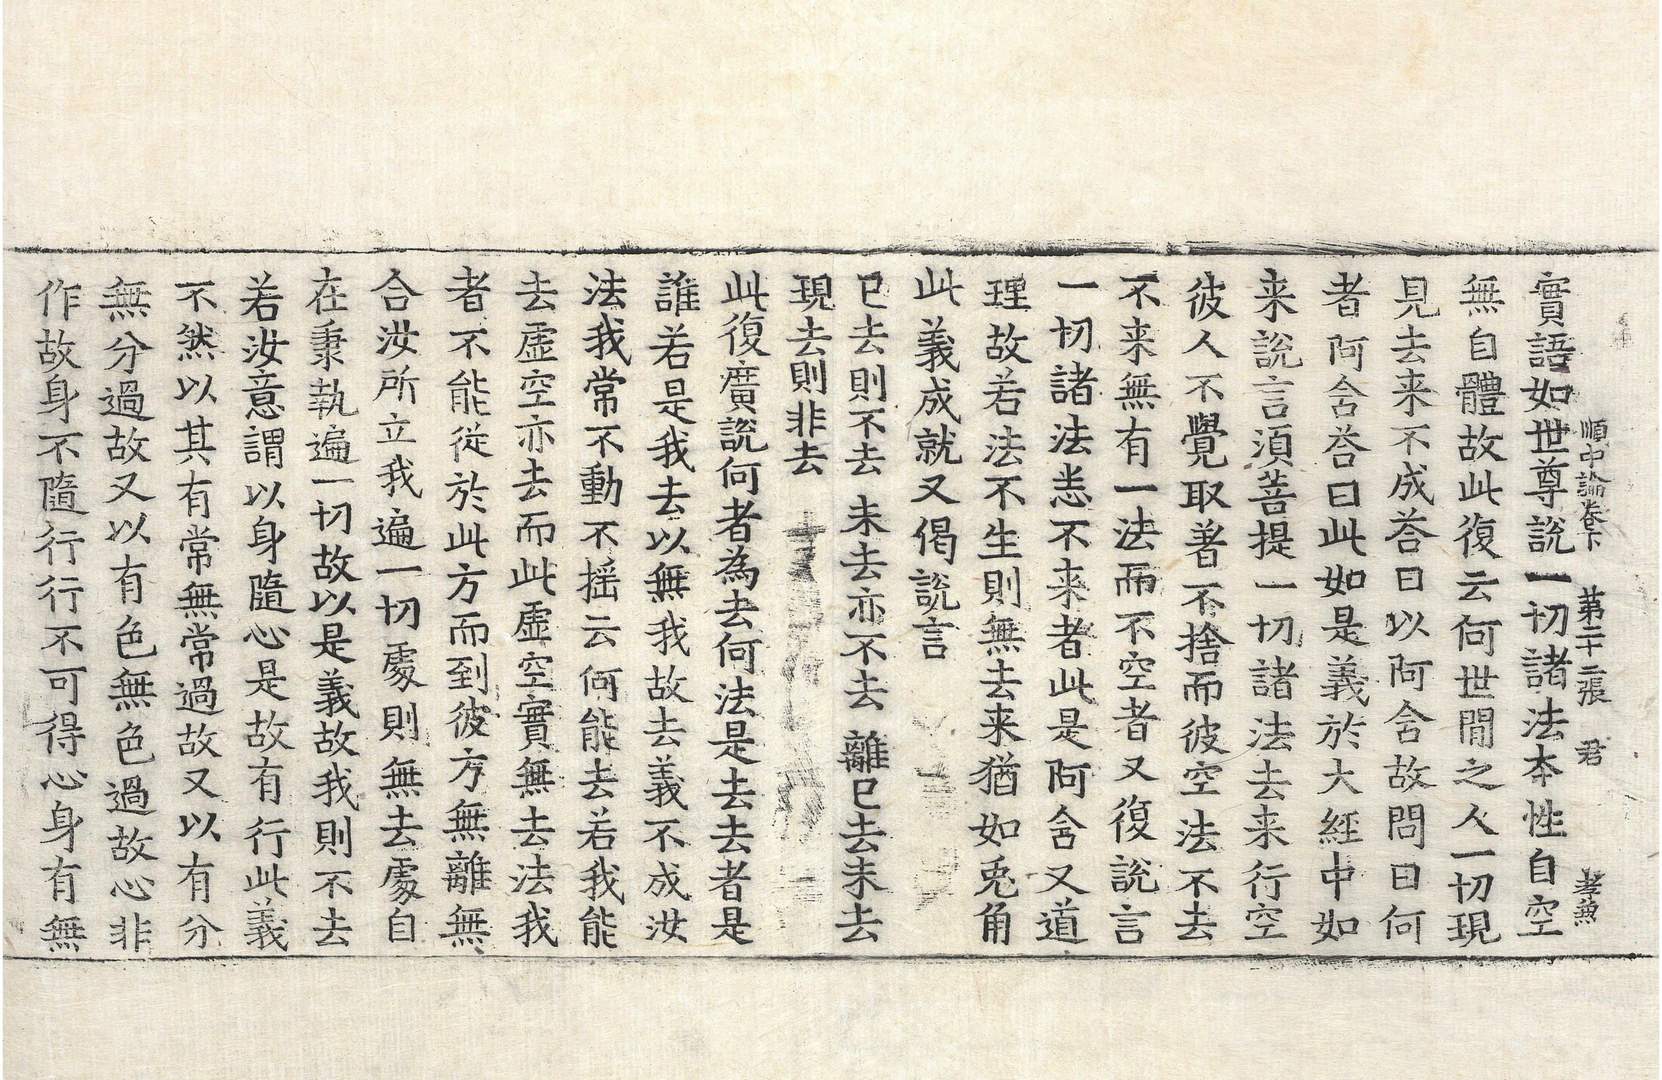 順中論卷下 第二十二張 君
實語如世尊說一切諸法本性自空
無自體故此復云何世間之人一切現
見去来不成荅曰以阿含故問曰何
者阿含荅曰此如是義於大經中如
来說言須菩提一切諸法去来行空
彼人不覺取著不捨而彼空法不去
不来無有一法而不空者又復說言
一切諸法悉不来者此是阿含又道
理故若法不生則無去来猶如兎角
此義成就又偈說言
已去則不去 未去亦不去 離已去未去
現去則非去
此復廣說何者為去何法是去去者是
誰若是我去以無我故去義不成汝
法我常不動不揺云何能去若我能
去虛空亦去而此虛空實無去法我
者不能從於此方而到彼方無離無
合汝所立我遍一切處則無去處自
在秉執遍一切故以是義故我則不去
若汝意謂以身隨心是故有行此義
不然以其有常無常過故又以有分
無分過故又以有色無色過故心非
作故身不隨行行不可得心身有無